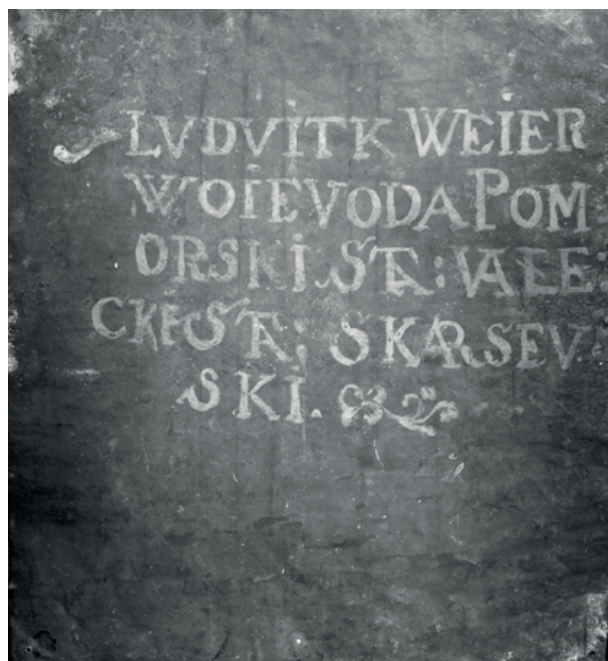 LVDVITK WEIER
WOIEVODA POM
ORSKI. STA: VAŁE
CKI STA: SKARSEV
SKI.